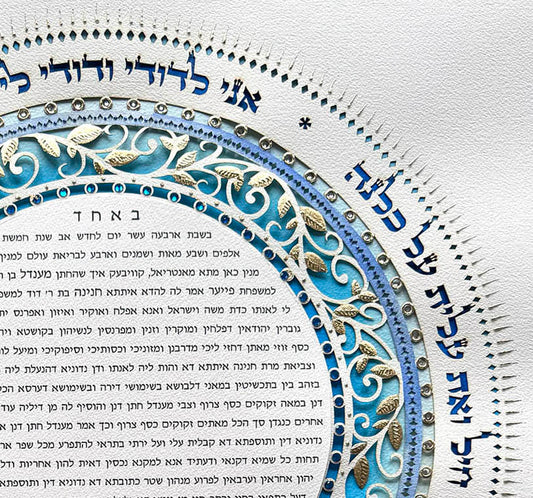 אני לדודי ודודי לי
חיל ואת עלית על כלנה
באחד
בשבת ארבעה עשר יום לחדש אב שנת חמשת
אלפים ושבע מאות ושמנים וארבע לבריאת עולם למנין
מנין כאן מתא מאנטריאל, קוויבעק איך שהחתן מענדל בן
למשפחת פייער אמר לה להדא איתתא חנינה בת ר׳ דוד למשפ
לי לאנתו כדת משה וישראל ואנא אפלח ואוקיר ואיזון ואפרנס
גוברין יהודאין דפלחין ומוקרין וזנין ומפרנסין לנשיהון בקושטא
כסף זוזי מאתן דחזי ליכי מדרבנן ומזוניכי וכסותיכי וסיפוקיכי ומיעל
וצביאת מרת חנינה איתתא דא והות ליה לאנתו ודן נדוניא דהנעלת ליה
בזהב בין בתכשיטין במאני דלבושא בשימושי דירה ובשימושא דערסא
דנן במאה זקוקים כסף צרוף וצבי מענדל חתן דנן והוסיף לה מן דיליה עוד
אחרים כנגדן סך הכל מאתים זקוקים כסף צרוף וכך אמר מענדל חתן
נדוניא דין ותוספתא דא קבלית עלי ועל ירתי בתראי להתפרע מכל שפר
תחות כל שמיא דקנאי ודעתיד אנא למקנא נכסין דאית להון אחריות
יהון אחראין וערבאין לפרוע מנהון שטר כתובתא דא נדוניא דין ותוספתא